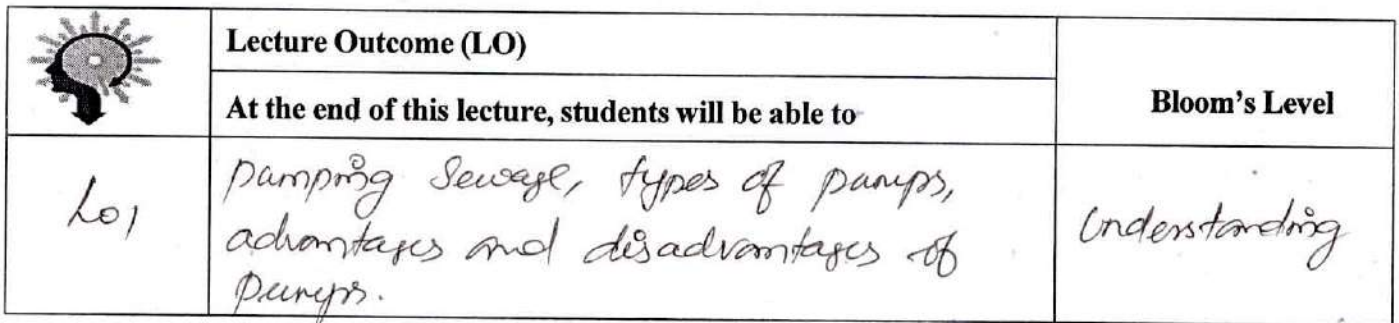 Lecture Outcome (LO)
At the end of this lecture, students will be able to
Bloom's Level
LO1
pumping sewage, types of pumps,
advantages and disadvantages of
pumps.
Understanding